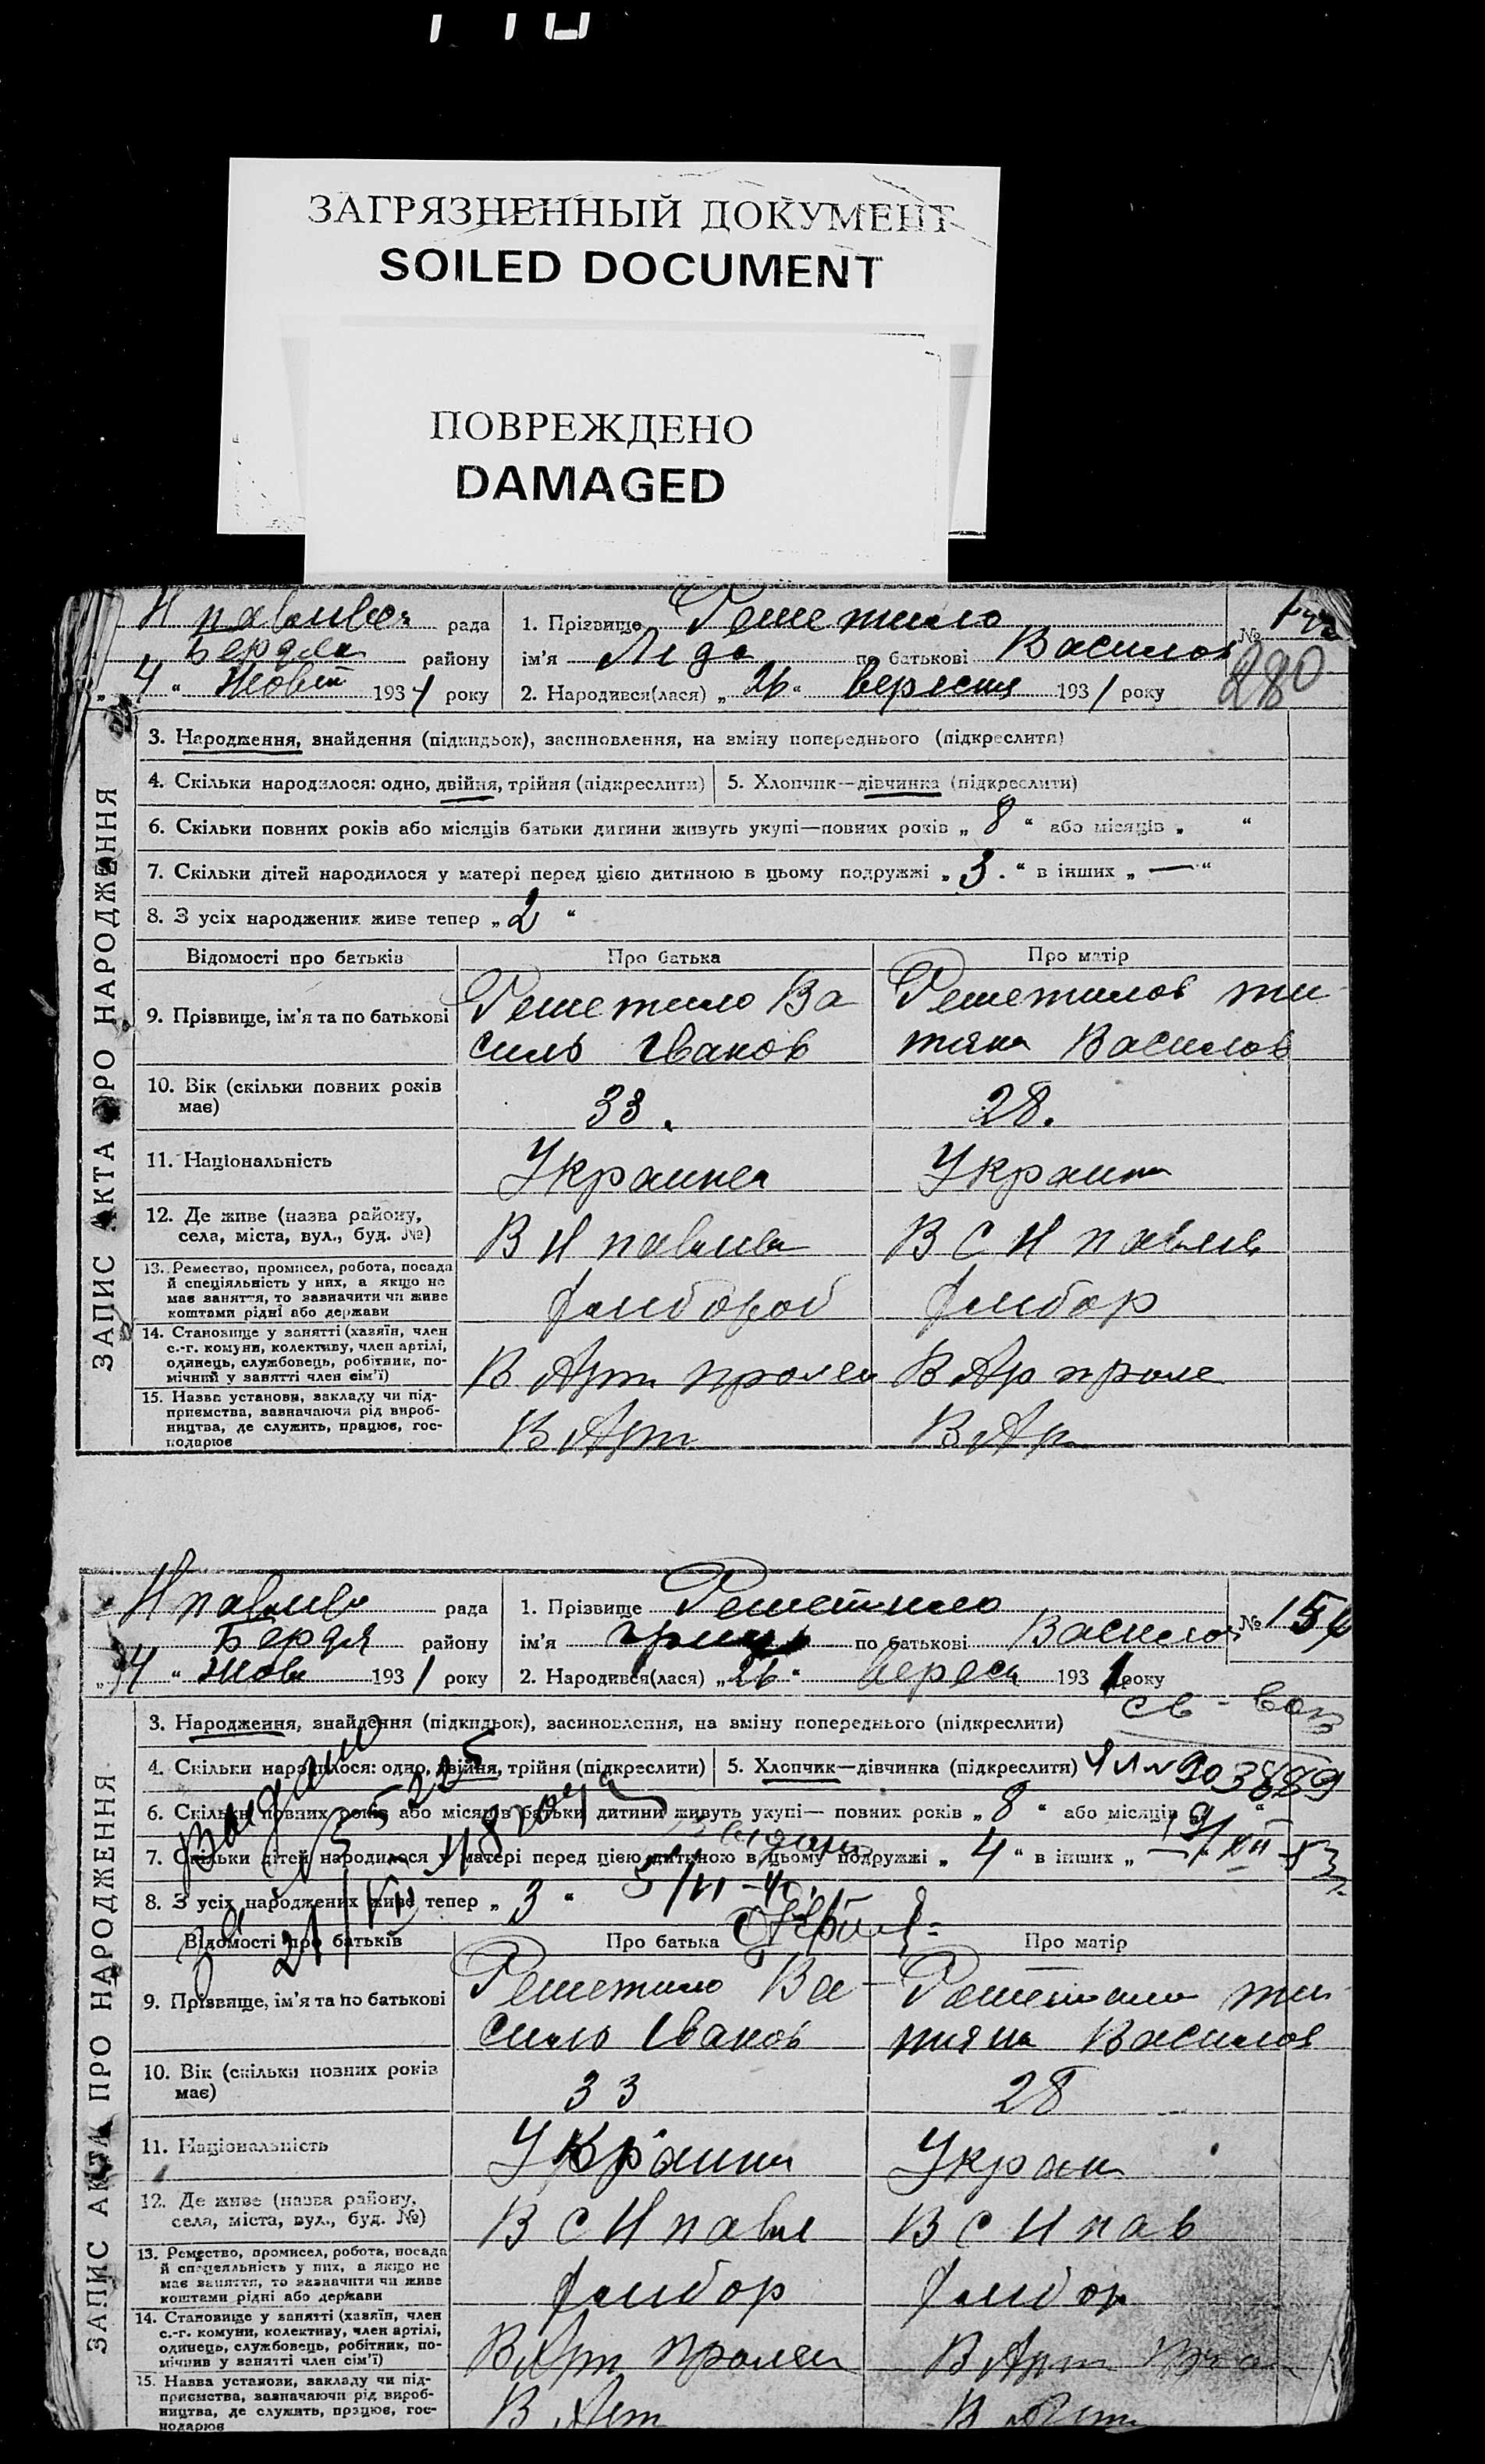 ЗАГРЯЗНЕННЫЙ ДОКУМЕНТ
SOILED DOCUMENT
ПОВРЕЖДЕНО
DAMAGED
рада
району
„ 4 “ Жовт 1931 року
1. Прізвище Решетило
ім'я Ліда по батькові Василов
2. Народився(лася) „ 26 “ вересня 1931 року
№
280
ЗАПИС АКТА ПРО НАРОДЖЕННЯ
3. Народження, знайдення (підкидьок), засиновлення, на зміну попереднього (підкреслити)
4. Скільки народилося: одно, двійня, трійня (підкреслити)
5. Хлопчик—дівчинка (підкреслити)
6. Скільки повних років або місяців батьки дитини живуть укупі—повних років „ 8 “ або місяців „ “
7. Скільки дітей народилося у матері перед цією дитиною в цьому подружжі „ 3. “ в інших „ — “
8. З усіх народжених живе тепер „ 2 “
Відомості про батьків
Про батька
Про матір
9. Прізвище, ім'я та по батькові
Решетило Ва
силь Іванов
Решетилов ти-
тяна Василов
10. Вік (скільки повних років
має)
33.
28.
11. Національність
Украинец
Украин
12. Де живе (назва району,
села, міста, вул., буд. №)
В Н павлив
В С Н павлив
13. Ремество, промисел, робота, посада
й спеціяльність у них, а якщо не
має заняття, то зазначити чи живе
коштами рідні або держави
14. Становище у занятті (хазяїн, член
с.-г. комуни, колективу, член артілі,
одинець, службовець, робітник, по-
мічний у занятті член сім'ї)
В Арт пролет
В Ар проле
15. Назва установи, закладу чи під-
приємства, зазначаючи рід вироб-
ництва, де служить, працює, гос-
подарює
В Арт
В Ар
рада
району
„ 4 “ Жов 1931 року
1. Прізвище Решетило
ім'я по батькові Василов
2. Народився(лася) „ 26 “ вересн 1931 року
№ 154
ЗАПИС АКТА ПРО НАРОДЖЕННЯ
3. Народження, знайдення (підкидьок), засиновлення, на зміну попереднього (підкреслити)
4. Скільки народилося: одно, двійня, трійня (підкреслити)
5. Хлопчик—дівчинка (підкреслити)
6. Скільки повних років або місяців батьки дитини живуть укупі— повних років „ 8 “ або місяців „
7. Скільки дітей народилося у матері перед цією дитиною в цьому подружжі „ 4 “ в інших „ — “
8. З усіх народжених живе тепер „ 3 “
Відомості про батьків
Про батька
Про матір
9. Прізвище, ім'я та по батькові
Решетило Ва-
силь Іванов
тяна Василов
10. Вік (скільки повних років
має)
33
28
11. Національність
Украин
Украин
12. Де живе (назва району,
села, міста, вул., буд. №)
В С Н павл
В С Н пав
13. Ремество, промисел, робота, посада
й спецеяльність у них, а якщо не
має заняття, то зазначити чи живе
коштами рідні або держави
14. Становище у занятті (хазяїн, член
с.-г. комуни, колективу, член артілі,
одинець, службовець, робітник, по-
мічнив у занятті член сім'ї)
В Арт пролет
В Арт
15. Назва установи, закладу чи під-
приємства, зазначаючи рід вироб-
ництва, де служить, працює, гос-
подарює
В Арт